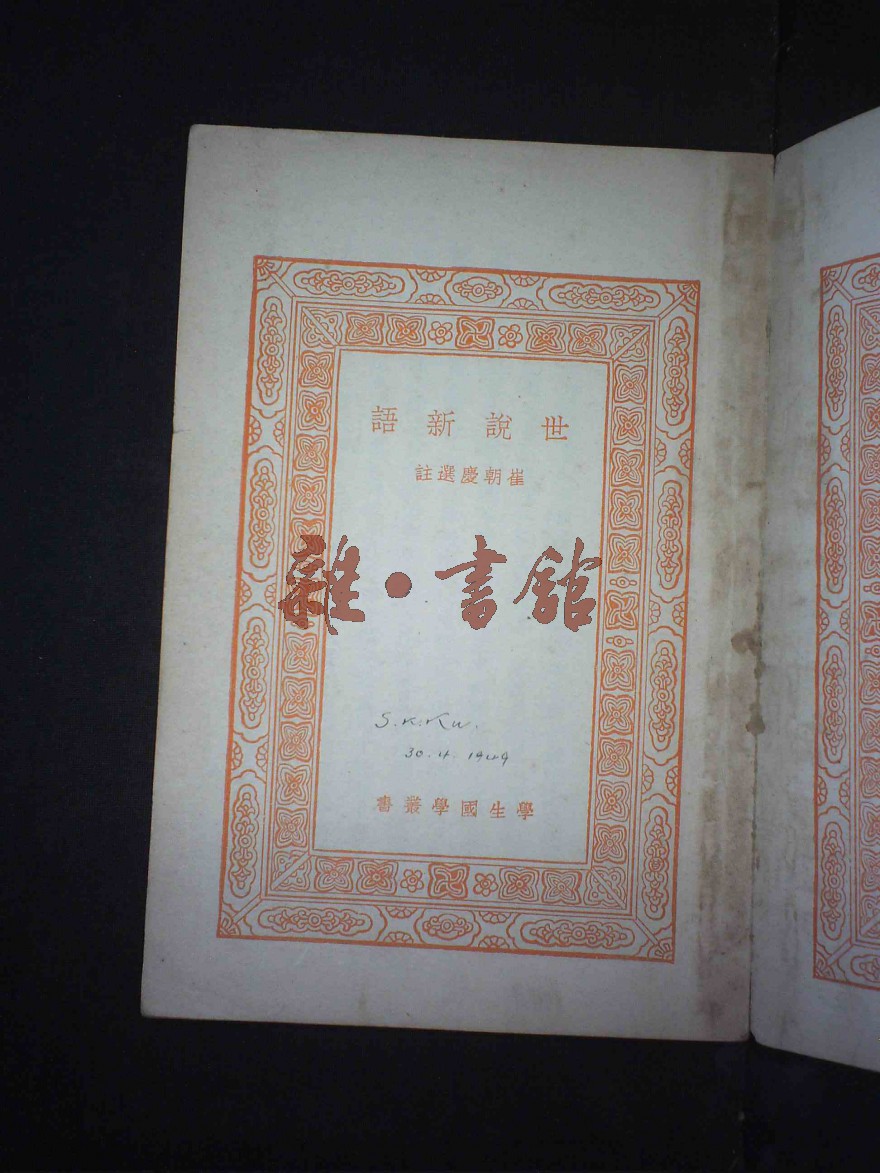 世說新語
崔朝慶選註
雜·書館
S.K.Ku.
30.4.1949
學生國學叢書